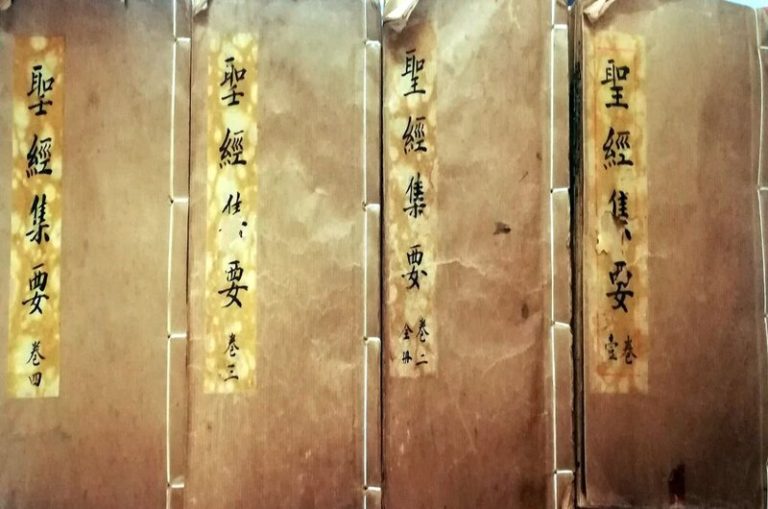 聖經集要
卷壹
聖經集要
卷二
全冊
聖經集要
卷三
聖經集要
卷四